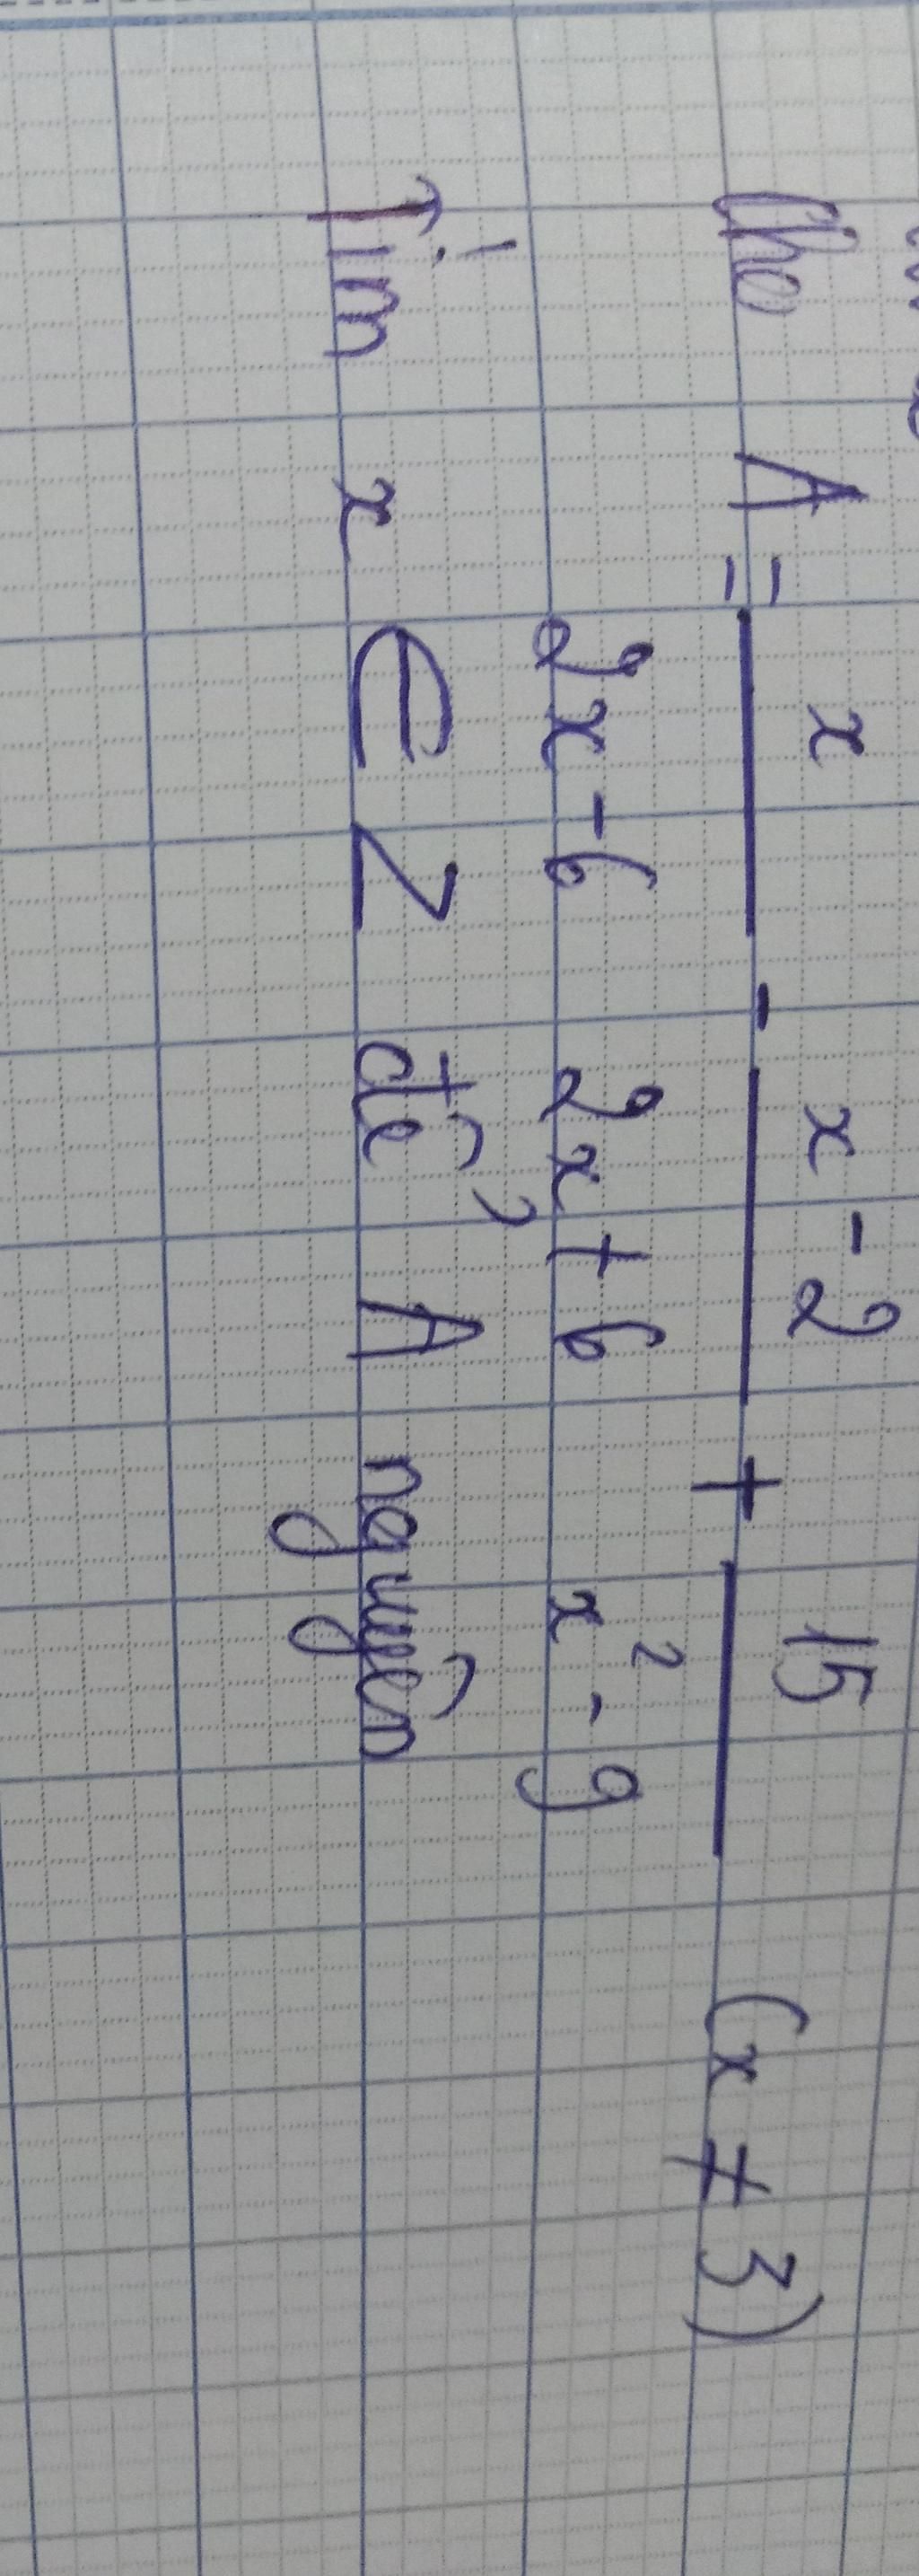 Cho A = x/(2x-6) - (x-2)/(2x+6) + 15/(x²-9) (x ≠ 3)
Tìm x ∈ Z để A nguyên